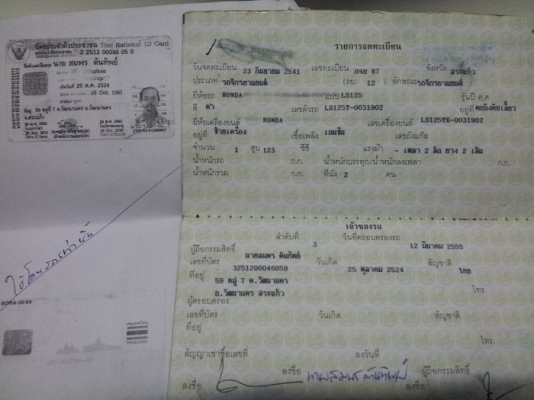 บัตรประจำตัวประชาชน Thai National ID Card
3 2512 00046 05 9
นาย สมพร ต้นทิพย์
เกิดวันที่ 25 ต.ค. 2524
25 Oct. 1981
ใช้โอนรถเท่านั้น
BORA
รายการจดทะเบียน
วันจดทะเบียน 23 กันยายน 2541 เลขทะเบียน กจย 87 จังหวัด สระแก้ว
ประเภท รถจักรยานยนต์ (รย. 12) ลักษณะ รถจักรยานยนต์
ยี่ห้อรถ HONDA แบบ LS125 รุ่นปี ค.ศ.
สี ดำ เลขตัวรถ LS125T-0031902 อยู่ที่
ยี่ห้อเครื่องยนต์ HONDA เลขเครื่องยนต์ LS125TE-0031902
อยู่ที่ ข้างเครื่อง เชื้อเพลิง เบนซิน เลขถังแก๊ส
จำนวน 1 สูบ 123 ซีซี แรงม้า - เพลา 2 ล้อ ยาง 2 เส้น
น้ำหนักรถ ก.ก. น้ำหนักบรรทุก/น้ำหนักลงเพลา ก.ก.
น้ำหนักรวม ก.ก. ที่นั่ง 2 คน
เจ้าของรถ
ลำดับที่ 3 วันที่ครอบครองรถ 12 มีนาคม 2555
ผู้ถือกรรมสิทธิ์ นายสมพร ต้นทิพย์
เลขที่บัตร 3251200046059 วันเกิด 25 ตุลาคม 2524 สัญชาติ ไทย
ที่อยู่ 59 หมู่ 7 ต.วัฒนานคร
อ.วัฒนานคร สระแก้ว โทร.
ผู้ครอบครอง
เลขที่บัตร วันเกิด สัญชาติ
ที่อยู่
โทร.
สัญญาเช่าซื้อเลขที่ ลงวันที่
ลงชื่อ นายสมพร ต้นทิพย์ ผู้ถือกรรมสิทธิ์
ลงชื่อ ลงชื่อ